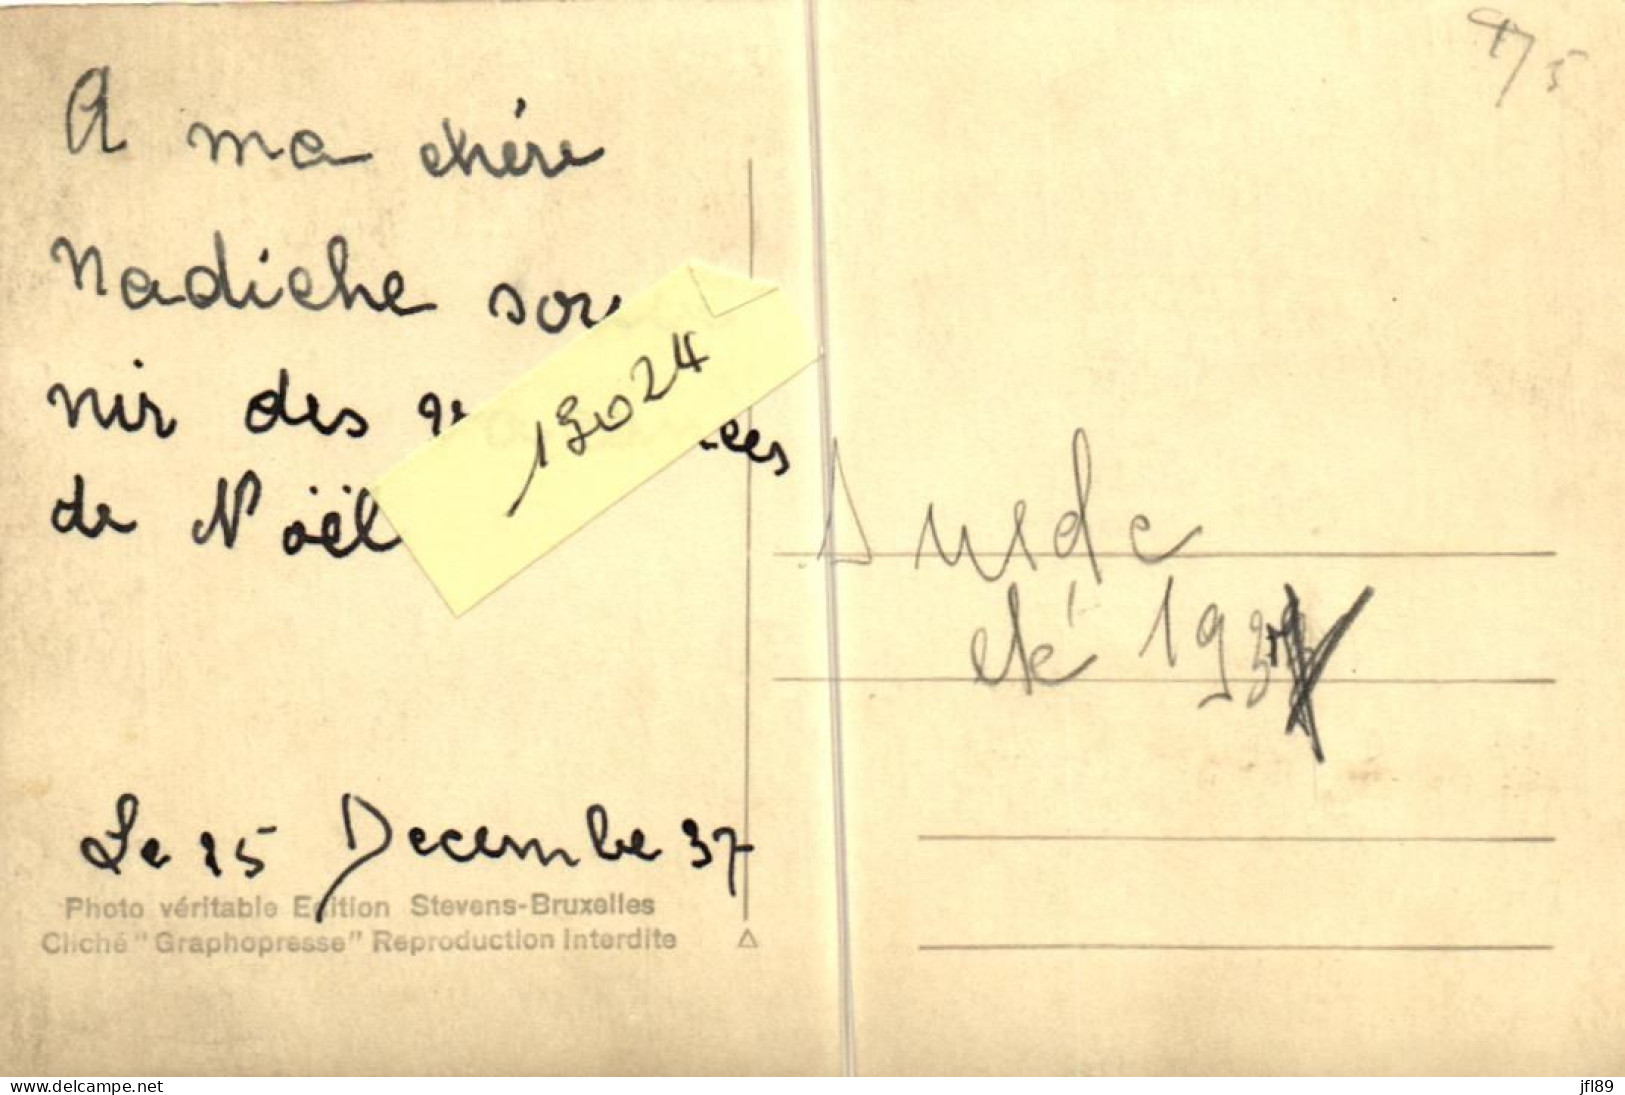 A ma chére
Nadiche sou
nir des
de Noël
13024
Le 25 Decembe 37
Photo véritable Edition Stevens-Bruxelles
Cliché "Graphopresse" Reproduction Interdite
975
Suede
eté 193
www.delcampe.net
jfl89